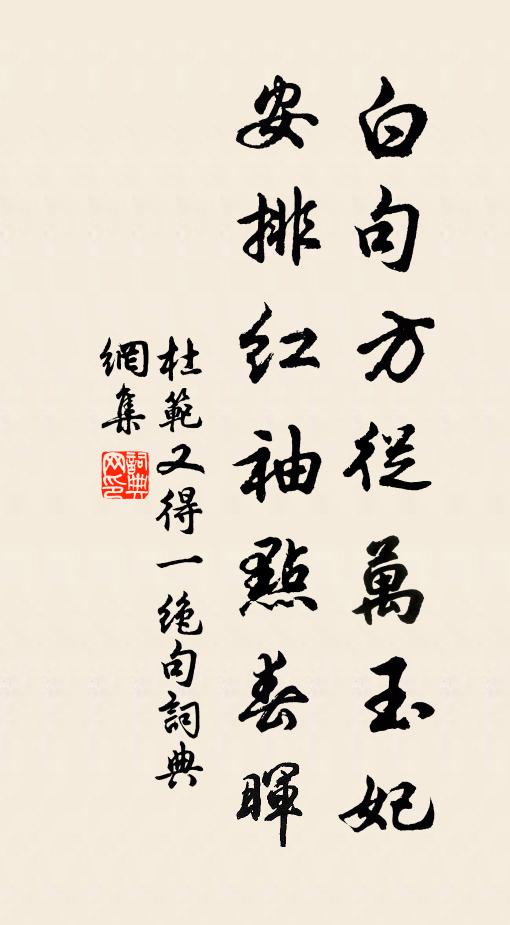 白句方從萬玉妃
安排紅袖點春暉
杜範又得一絕句詞典
網集
詞典網印